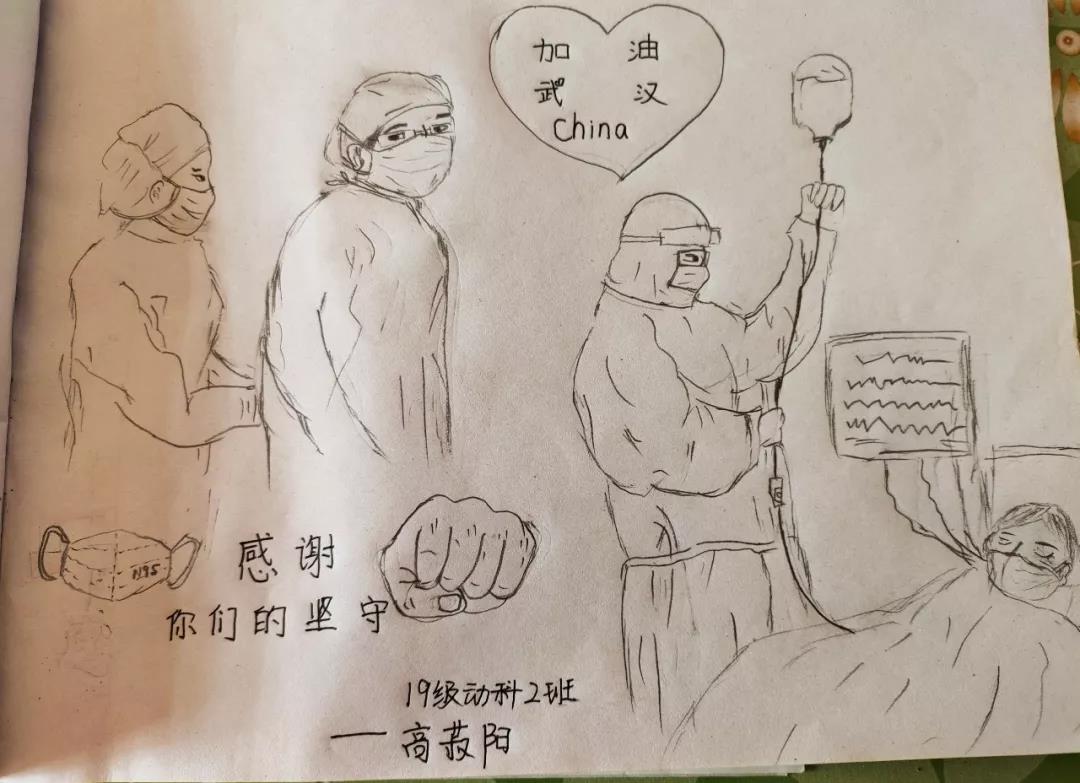 加油
武汉
China
N95
感谢
你们的坚守
19级动科2班
——高菽阳